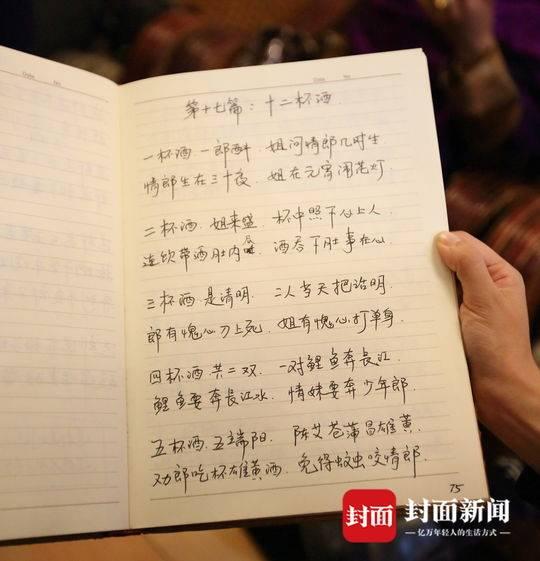 第十七篇：十二杯酒
一杯酒 一郎酙 姐问情郎几时生
情郎生在三十夜 姐在元宵闹花灯.
二杯酒. 姐来盛. 杯中照下心上人.
连饮带酒肚内 酒吞下肚事在心.
三杯酒 是清明. 二人当天把话明.
郎有愧心刀上死, 姐有愧心打单身.
四杯酒 共二双. 一对鲤鱼奔长江.
鲤鱼要奔长江水. 情妹要奔少年郎.
五杯酒. 五端阳. 陈艾苍蒲昌雄黄.
劝郎吃杯雄黄酒. 免得蚊虫咬情郎.
75
封面 封面新闻
亿万年轻人的生活方式